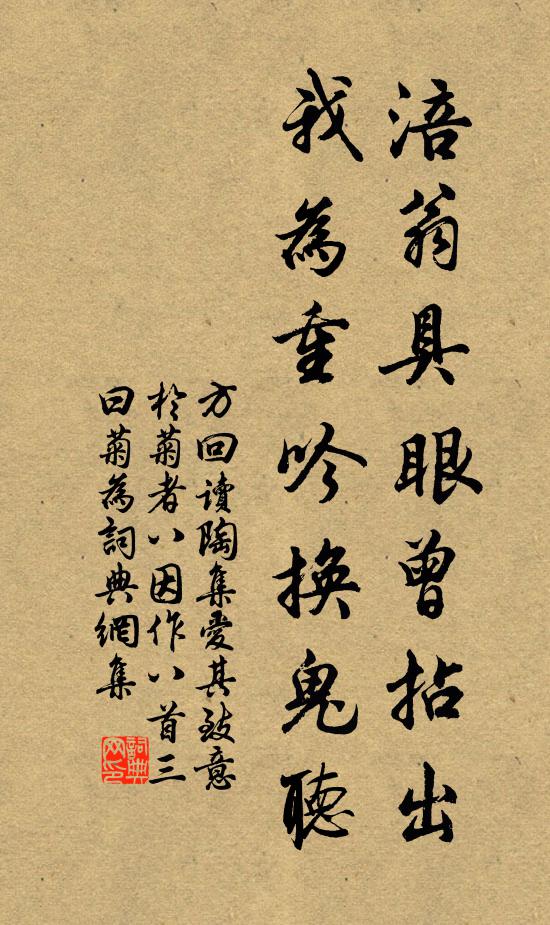 涪翁具眼曾拈出
我為重吟換鬼聽
方回讀陶集愛其致意
於菊者八因作八首三
曰菊為詞典網集
詞典网印